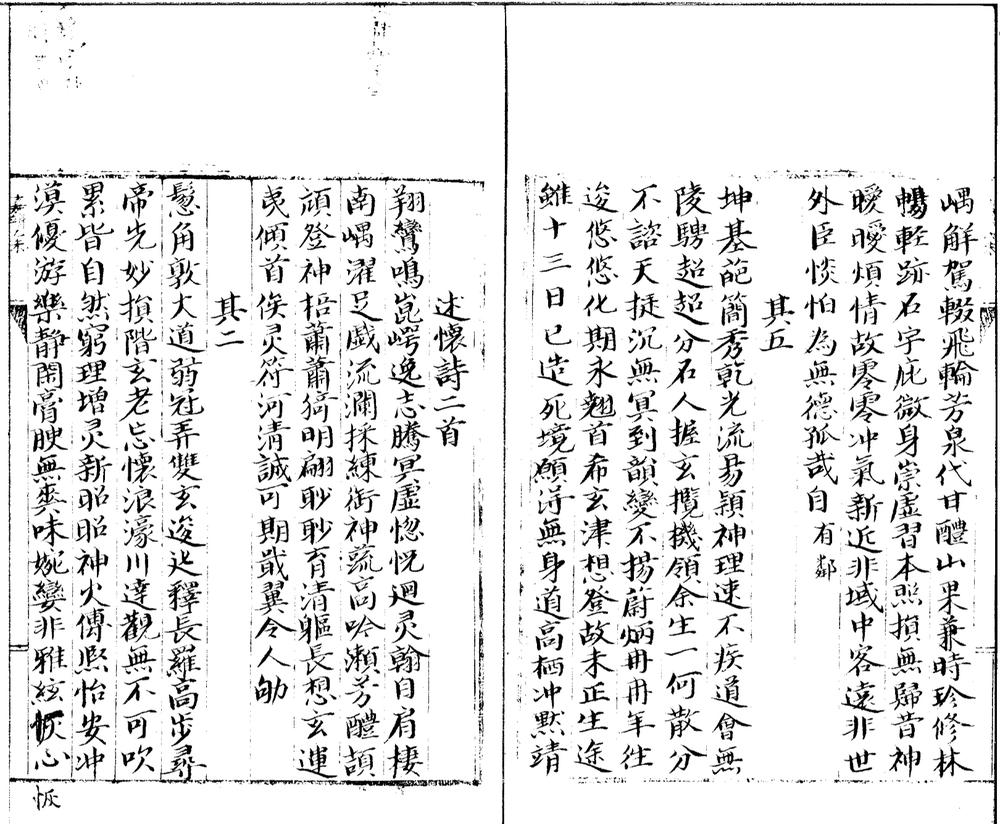 嵎解駕輟飛輪芳泉代甘醴山果兼時珍修林
暢輕跡石宇庇微身崇虛習本照損無歸昔神
曖曖煩情故零零冲氣新近非域中客遠非世
外臣惔怕為無德孤哉自有鄰
其五
坤基葩簡秀乾光流易頴神理速不疾道會無
陵騁超超分石人握玄攬機領余生一何散分
不諮天挺沉無冥到韻變不揚蔚炳冉冉年往
逡悠悠化期永翹首希玄津想登故未正生途
雖十三日已造死境願淂無身道高栖冲默靖
述懷詩二首
翔鸞鳴崑崿逸志騰冥虛惚怳迴灵翰自肩棲
南嵎濯足戲流瀾採練銜神蔬高吟瀬芳醴頡
頏登神梧蕭蕭猗明翩眇眇育清軀長想玄運
夷傾首俟灵符河清誠可期戢翼令人劬
其二
髫角敦大道弱冠弄雙玄逡迆釋長羅高步尋
帝先妙損階玄老忘懷浪濠川達觀無不可吹
累皆自然窮理增灵新昭昭神火傳熙怡安冲
漠優游樂靜閑膏腴無爽味婉孌非雅絃恢心
恢